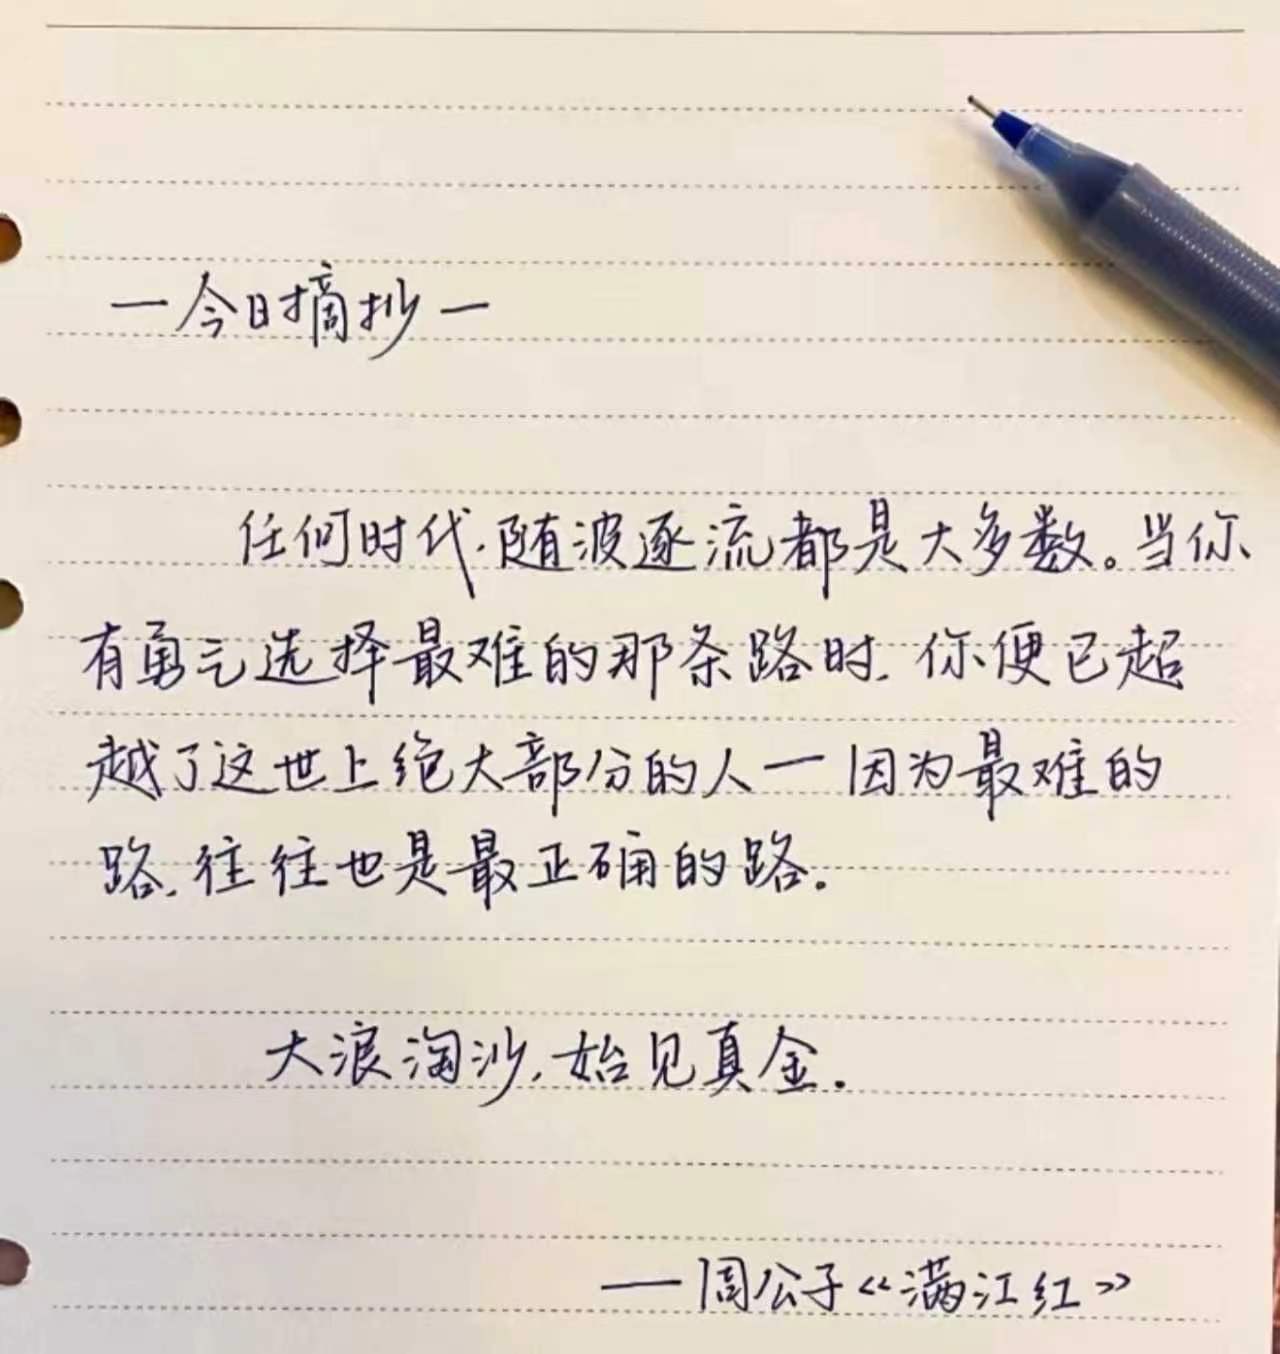 一今日摘抄一
任何时代,随波逐流都是大多数。当你
有勇气选择最难的那条路时,你便已超
越了这世上绝大部分的人一因为最难的
路,往往也是最正确的路。
大浪淘沙,始见真金.
——周公子《满江红》